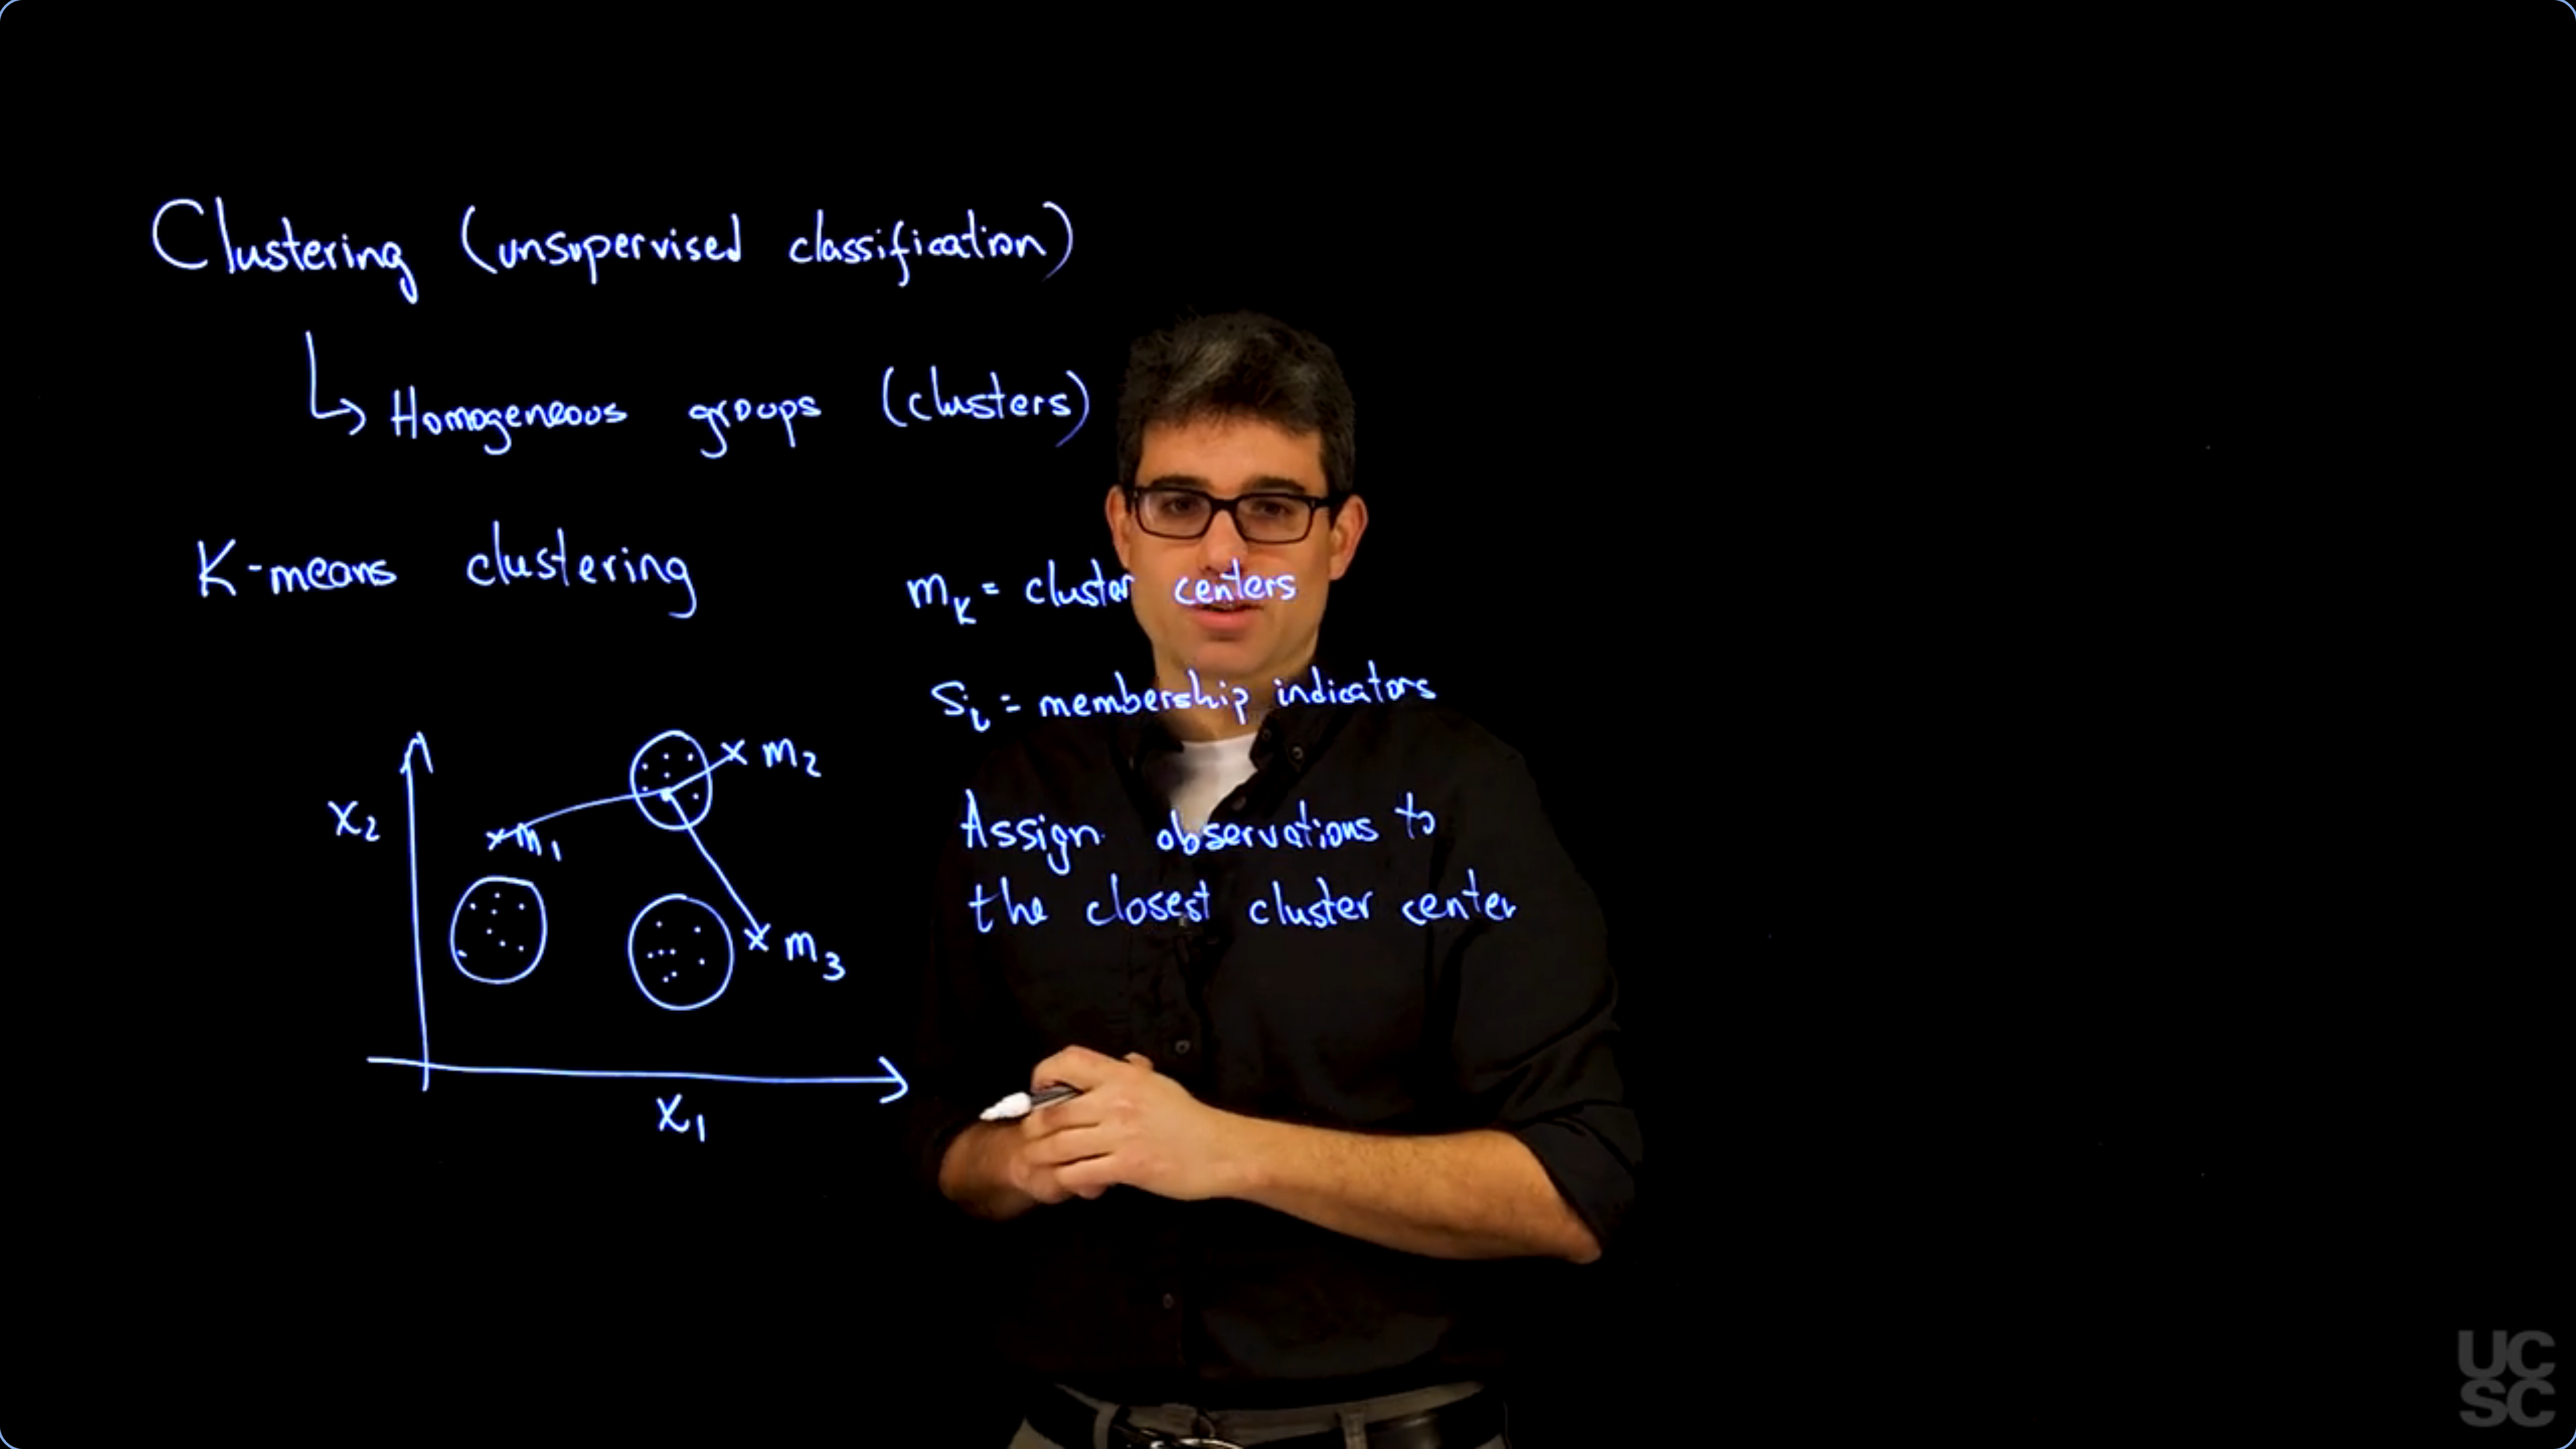 Clustering (unsupervised classification)
↳ Homogeneous groups (clusters)
K-means clustering
m_k = cluster centers
S_i = membership indicators
Assign observations to
the closest cluster center
x_2
x_1
m_1
m_2
m_3
UC
SC